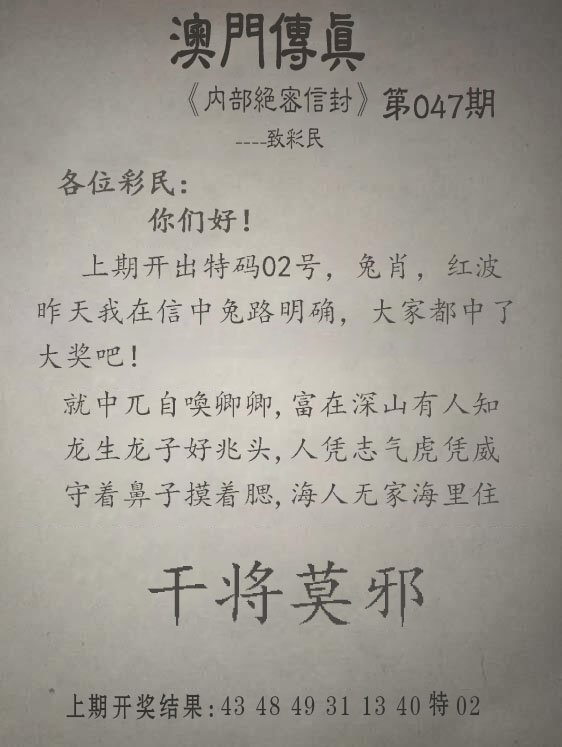 澳門傳真
《内部絕密信封》第047期
----致彩民
各位彩民：
你们好！
上期开出特码02号，兔肖，红波
昨天我在信中兔路明确，大家都中了
大奖吧！
就中兀自唤卿卿,富在深山有人知
龙生龙子好兆头,人凭志气虎凭威
守着鼻子摸着腮,海人无家海里住
干将莫邪
上期开奖结果:43 48 49 31 13 40 特 02